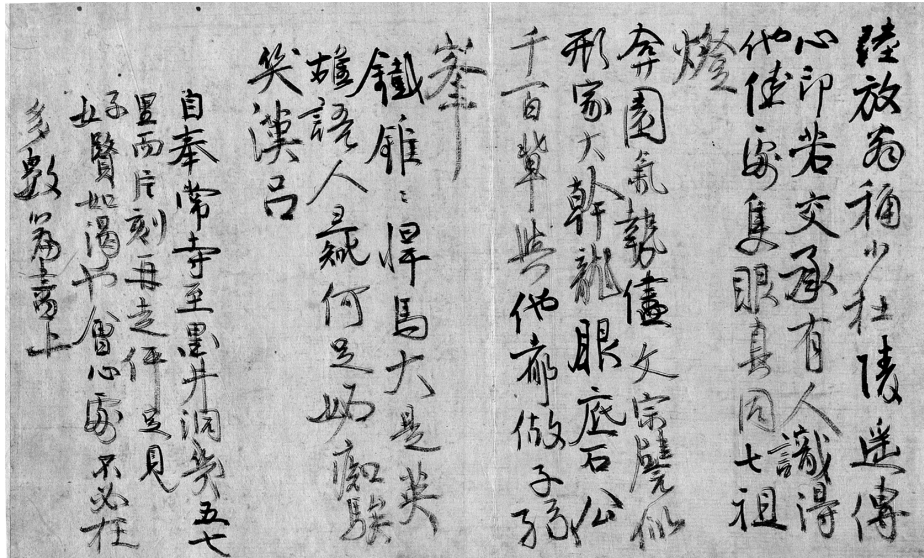 陸放翁稱小杜陵遥傳
心印若交承有人識得
他佳處隻眼真同七祖
燈
弈園氣勢儘文宗譬似
形家大幹龍眼底石公
千百輩與他都做子孫
峯
鐵錐悍馬大是英
雄語人彘何足妨癡騃
笑漢呂
自奉常寺至墨井洞幾五七
里而片刻再走伻足見
好賢如渴也會心處不必在
多數篇書上